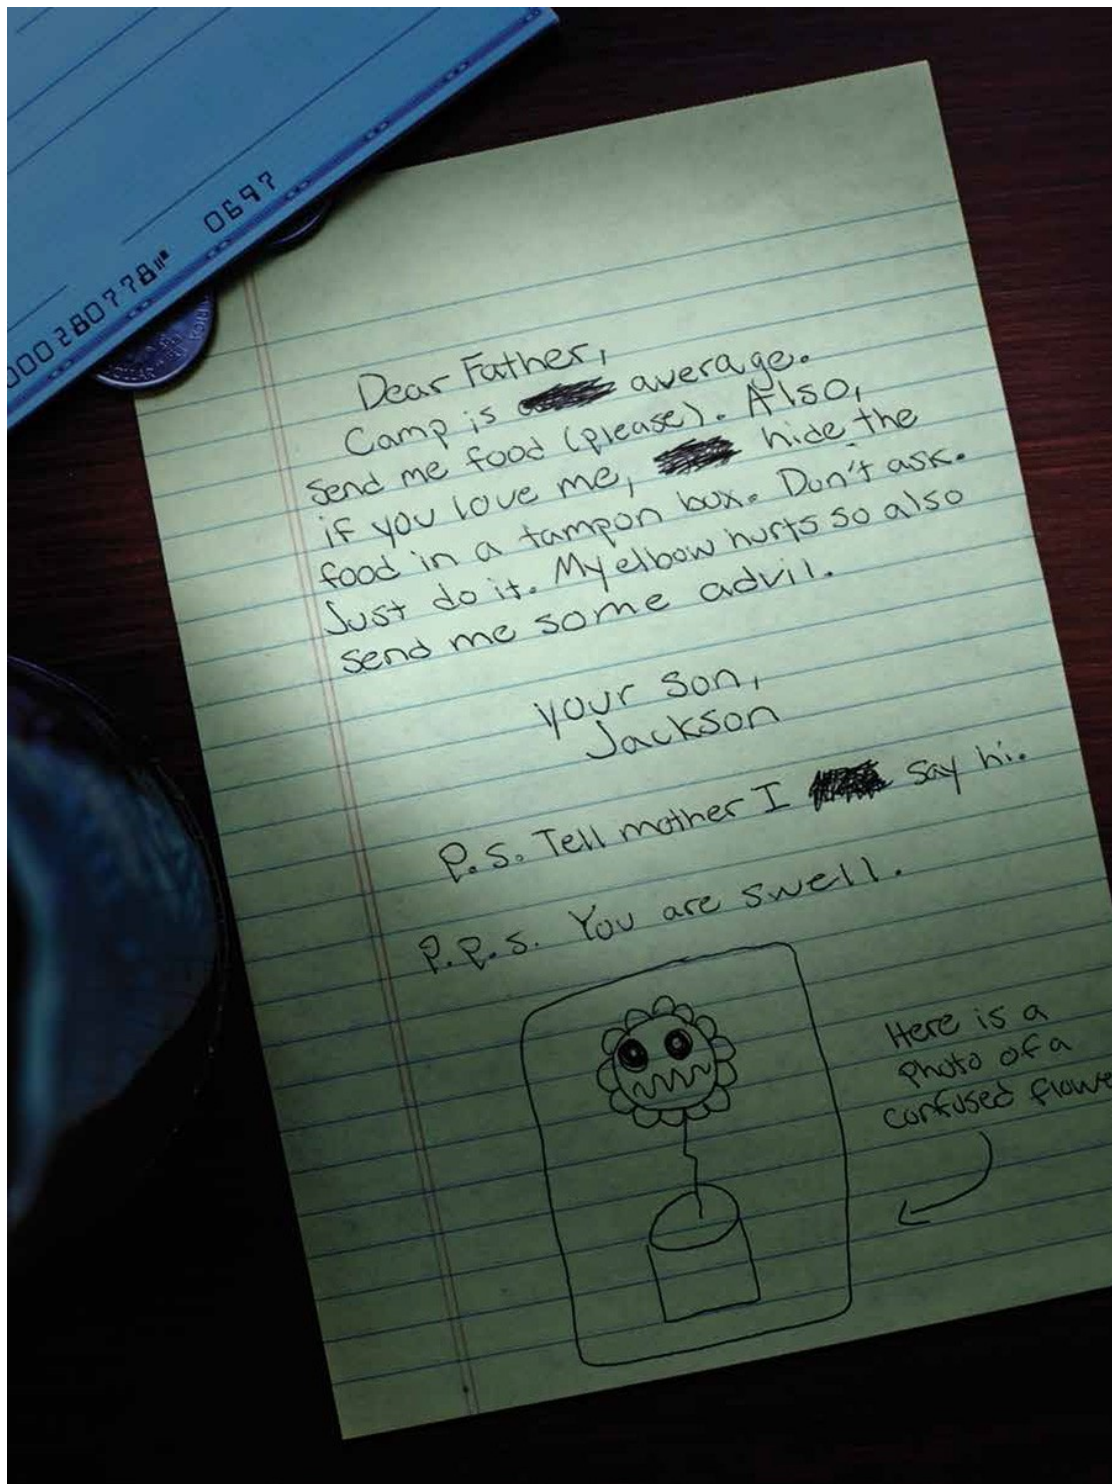 000280778⑈ 0697
Dear Father,
Camp is average.
Send me food (please). Also,
if you love me, hide the
food in a tampon box. Don't ask.
Just do it. My elbow hurts so also
send me some advil.
your son,
Jackson
P.S. Tell mother I say hi.
P.P.S. You are swell.
Here is a
photo of a
confused flowe